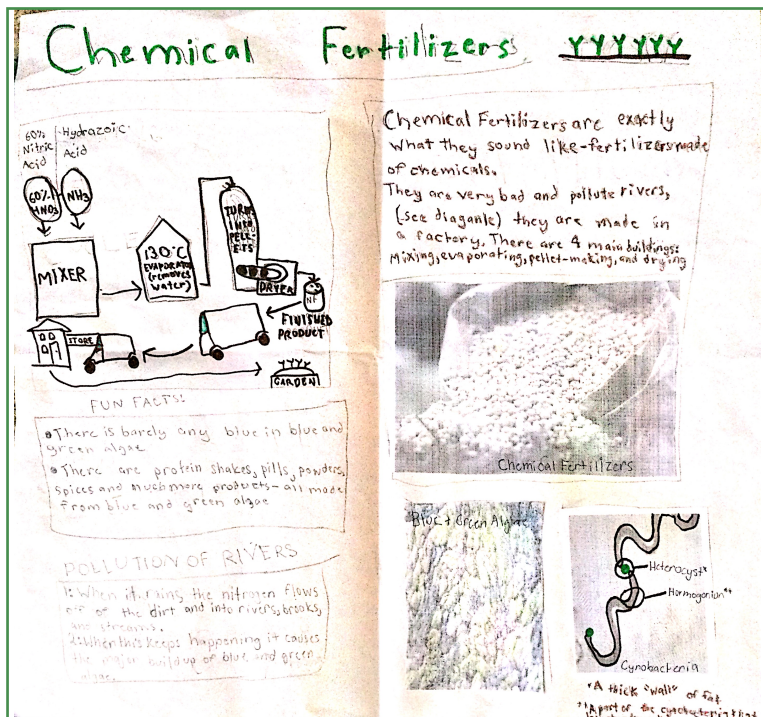 Chemical Fertilizers
60% Nitric Acid
Hydrazoic Acid
60% HNO3
NH3
MIXER
130°C
EVAPORATOR
(removes
water)
TURNS
INTO
PELL-
ETS
DRYER
NF
FINISHED
PRODUCT
STORE
GARDEN
FUN FACTS:
•There is barely any blue in blue and
green algae
•There are protein shakes, pills, powders,
spices and much more products-all made
from blue and green algae
POLLUTION OF RIVERS
1: When it rains, the nitrogen flows
off of the dirt and into rivers, brooks,
and streams.
2: When this keeps happening it causes
the major buildup of blue and green
algae.
Chemical Fertilizers are exactly
what they sound like-fertilizers made
of chemicals.
They are very bad and pollute rivers,
(see diagable) they are made in
a factory. There are 4 main buildings:
Mixing, evaporating, pellet-making, and drying
Chemical Fertilizers
Blue + Green Algae
Heterocyst*
Hormogonium**
Cynobacteria
*A thick "wall" of fat
**A part of the